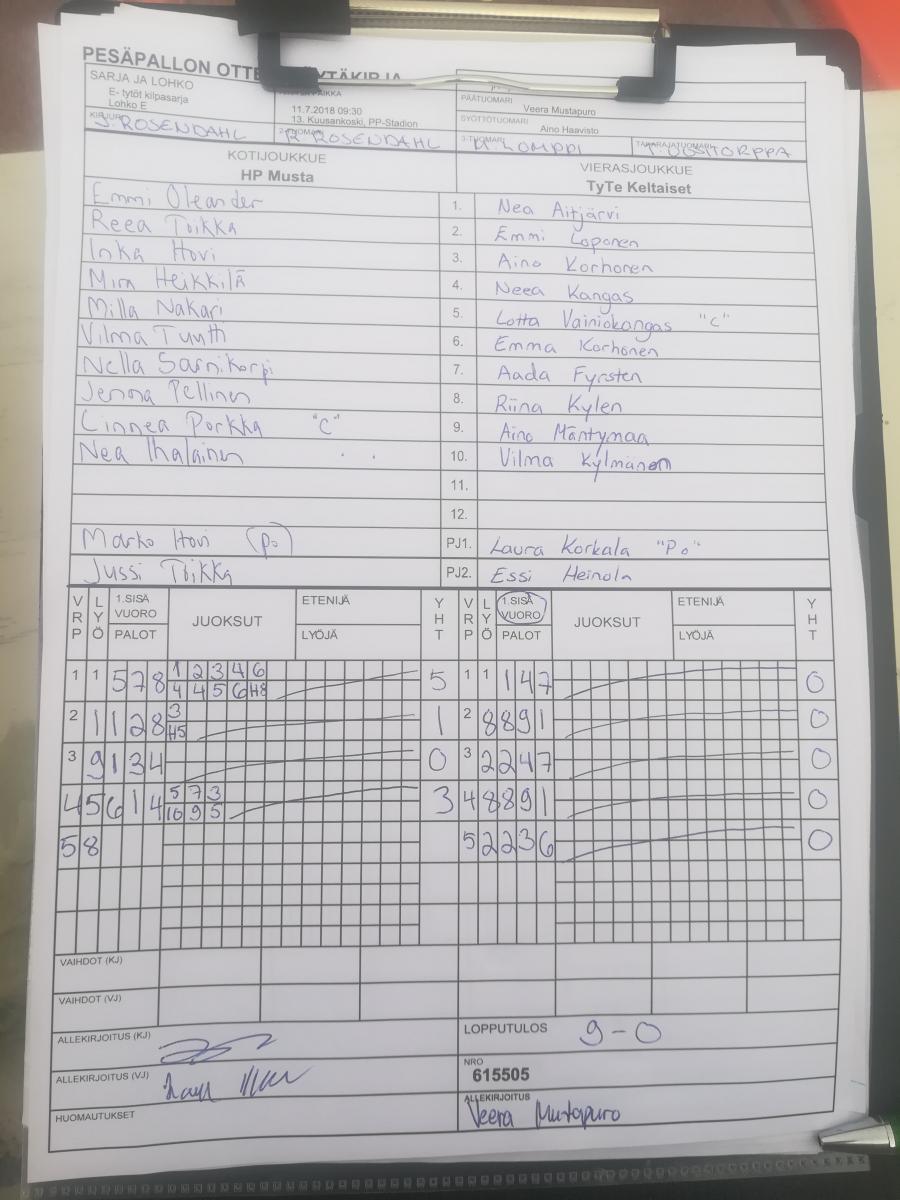 PESÄPALLON
SARJA JA LOHKO
E- tytöt kilpasarja
Lohko E
11.7.2018 09:30
13. Kuusankoski, PP-Stadion
PÄÄTUOMARI
Veera Mustapuro
SYÖTTÖTUOMARI
Aino Haavisto
KIRJURI
J. ROSENDAHL
ROSENDAHL
TAKARAJATUOMARI
KOTIJOUKKUE
HP Musta
VIERASJOUKKUE
TyTe Keltaiset
Emmi Oleander 1. Nea Aitjärvi
Reea Toikka 2. Emmi Loponen
Inka Hovi 3. Aino Korhonen
Mira Heikkilä 4. Neea Kangas
Milla Nakari 5. Lotta Vainiokangas "C"
Vilma Tunth 6. Emma Korhonen
Nella Sarnikorpi 7. Aada Fyrsten
Jenna Pellinen 8. Riina Kylen
Linnea Porkka "C" 9. Aino Mäntymaa
Nea Ihalainen 10. Vilma Kylmänen
11.
12.
Marko Hovi (po) PJ1. Laura Korkala "Po"
Jussi Toikka PJ2. Essi Heinola
VRP LYÖ 1.SISÄ VUORO PALOT JUOKSUT ETENIJÄ LYÖJÄ YHT VRP LYÖ 1.SISÄ VUORO PALOT JUOKSUT ETENIJÄ LYÖJÄ YHT
1 1 5 7 8 1 2 3 4 6 5 1 1 1 4 7 0
4 4 5 6 H8
2 1 1 2 8 3 1 2 8 8 9 1 0
H5
3 9 1 3 4 0 3 2 2 4 7 0
4 5 6 1 4 5 7 3 3 4 8 8 9 1 0
10 9 5
5 8 5 2 2 3 6 0
VAIHDOT (KJ)
VAIHDOT (VJ)
ALLEKIRJOITUS (KJ)
LOPPUTULOS 9-0
ALLEKIRJOITUS (VJ)
NRO
615505
HUOMAUTUKSET
ALLEKIRJOITUS
Veera Mustapuro